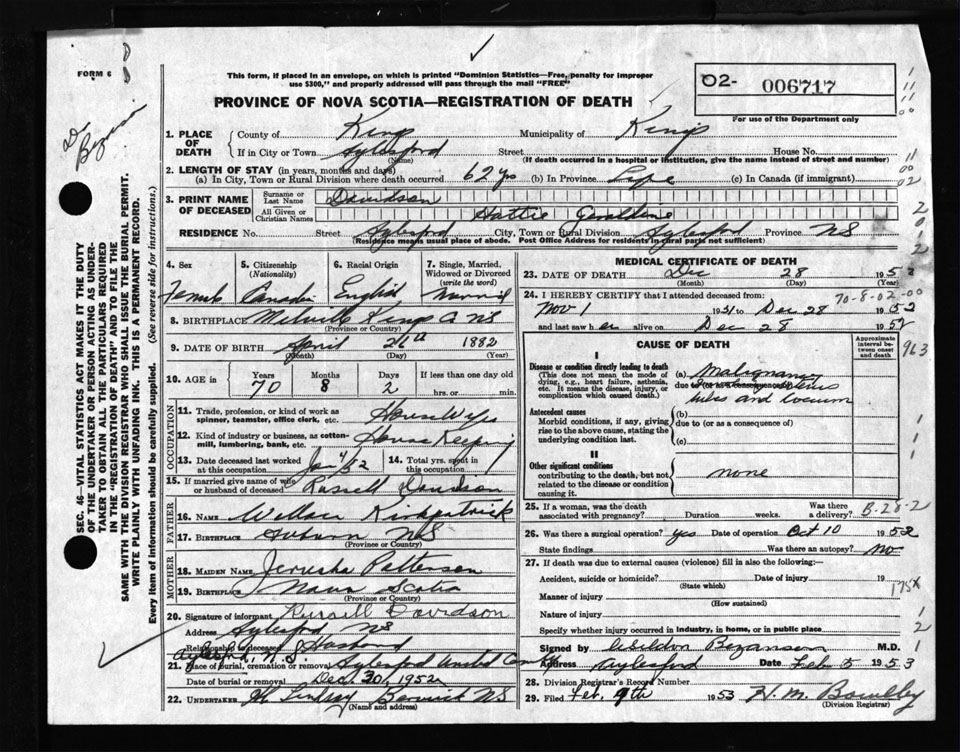 FORM 6
Dr Bezanson
This form, if placed in an envelope, on which is printed "Dominion Statistics—Free, penalty for improper
use $300," and properly addressed will pass through the mail "FREE"
PROVINCE OF NOVA SCOTIA—REGISTRATION OF DEATH
02- 006717
For use of the Department only
1. PLACE OF DEATH County of Kings Municipality of Kings
If in City or Town Aylesford Street House No.
(Name) (If death occurred in a hospital or institution, give the name instead of street and number)
2. LENGTH OF STAY (in years, months and days)
(a) In City, Town or Rural Division where death occurred 62 yrs (b) In Province Life (c) In Canada (if immigrant)
3. PRINT NAME OF DECEASED Surname or Last Name Davidson
All Given or Christian Names Hattie Geraldine
RESIDENCE No. Street Aylesford City, Town or Rural Division Aylesford Province NS
(Residence means usual place of abode. Post Office Address for residents in rural parts not sufficient)
4. Sex Female
5. Citizenship (Nationality) Canadian
6. Racial Origin English
7. Single, Married, Widowed or Divorced (write the word) Married
8. BIRTHPLACE Melville Kings Co NS
(Province or Country)
9. DATE OF BIRTH April 26th 1882
(Month) (Day) (Year)
10. AGE in Years 70 Months 8 Days 2 If less than one day old
hrs. or min.
OCCUPATION
11. Trade, profession, or kind of work as spinner, teamster, office clerk, etc. House Wife
12. Kind of industry or business, as cotton-mill, lumbering, bank, etc. House Keeping
13. Date deceased last worked at this occupation Jan 4/52 14. Total yrs. spent in this occupation
15. If married give name of wife or husband of deceased Russell Davidson
FATHER
16. NAME Wallace Kirkpatrick
17. BIRTHPLACE Auburn NS
(Province or Country)
MOTHER
18. MAIDEN NAME Jerusha Patterson
19. BIRTHPLACE Nova Scotia
(Province or Country)
20. Signature of informant Russell Davidson
Address Aylesford NS
Relationship to deceased Husband
Aylesford, N.S.
21. Place of burial, cremation or removal Aylesford United Cem
Date of burial or removal Dec. 30, 1952
22. UNDERTAKER H Lindsay Berwick NS
(Name and address)
MEDICAL CERTIFICATE OF DEATH
23. DATE OF DEATH Dec 28 1952
(Month) (Day)
70-8-02-00
24. I HEREBY CERTIFY that I attended deceased from:
Nov 1 1951 to Dec 28 1952
and last saw her alive on Dec 28 1952
CAUSE OF DEATH
Approximate interval between onset and death
963
I
Disease or condition directly leading to death
(This does not mean the mode of dying, e.g., heart failure, asthenia, etc. It means the disease, injury, or complication which caused death.)
(a) Malignancy
due to (or as a consequence of)
tubes and
Antecedent causes
Morbid conditions, if any, giving rise to the above cause, stating the underlying condition last.
(b)
due to (or as a consequence of)
(c)
II
Other significant conditions
contributing to the death, but not related to the disease or condition causing it.
none
25. If a woman, was the death associated with pregnancy? Duration weeks. Was there a delivery?
B-28-2
26. Was there a surgical operation? yes Date of operation Oct 10 1952
State findings Was there an autopsy? no
27. If death was due to external causes (violence) fill in also the following:
Accident, suicide or homicide? Date of injury 19
(State which)
175x
Manner of injury
(How sustained)
Nature of injury
Specify whether injury occurred in industry, in home, or in public place
Signed by Weldon Bezanson M.D.
Address Aylesford Date Feb 5 1953
28. Division Registrar's Record Number
29. Filed Feb. 9th 1953 H. M. 
(Division Registrar)
SEC. 46—VITAL STATISTICS ACT MAKES IT THE DUTY
OF THE UNDERTAKER OR PERSON ACTING AS UNDER-
TAKER TO OBTAIN ALL THE PARTICULARS REQUIRED
IN THE "REGISTRATION OF DEATH" AND TO FILE THE
SAME WITH THE DIVISION REGISTRAR WHO SHALL ISSUE THE BURIAL PERMIT.
WRITE PLAINLY WITH UNFADING INK. THIS IS A PERMANENT RECORD.
Every item of information should be carefully supplied. (See reverse side for instructions.)